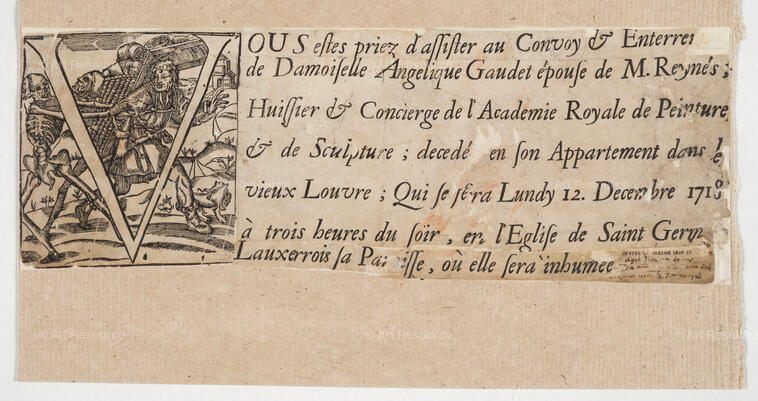 VOUS estes priez d'assister au Convoy & Enterrem
de Damoiselle Angelique Gaudet épouse de M. Reynés ;
Huissier & Concierge de l'Academie Royale de Peinture
& de Sculpture ; decedé en son Appartement dans le
vieux Louvre ; Qui se fera Lundy 12. Decembre 1718
à trois heures du soir, en l'Eglise de Saint Germ
Lauxerrois sa Paroisse, où elle sera inhumee